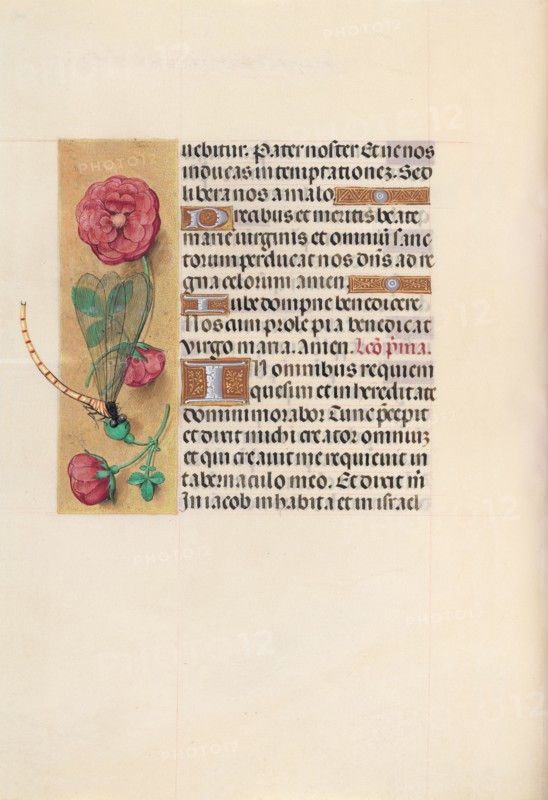 uebitur. Pater noster Et ne nos
inducas in temptationez. Sed
libera nos a malo.
Precabus et meritis beate
marie uirginis et omniũ sanc
torum perducat nos dñs ad re
gna celorum amen.
Iube dompne benedicere
Nos cum prole pia benedicat
Virgo maria. Amen. lc̃o p̃ma.
IN omnibus requiem
quesiui et in hereditate
domini morabor Tunc p̃cepit
et dixit michi creator omniuz
et qui creauit me requieuit in
tabernaculo meo. Et dixit m̃
In iacob inhabita et in israel
PHOTO12